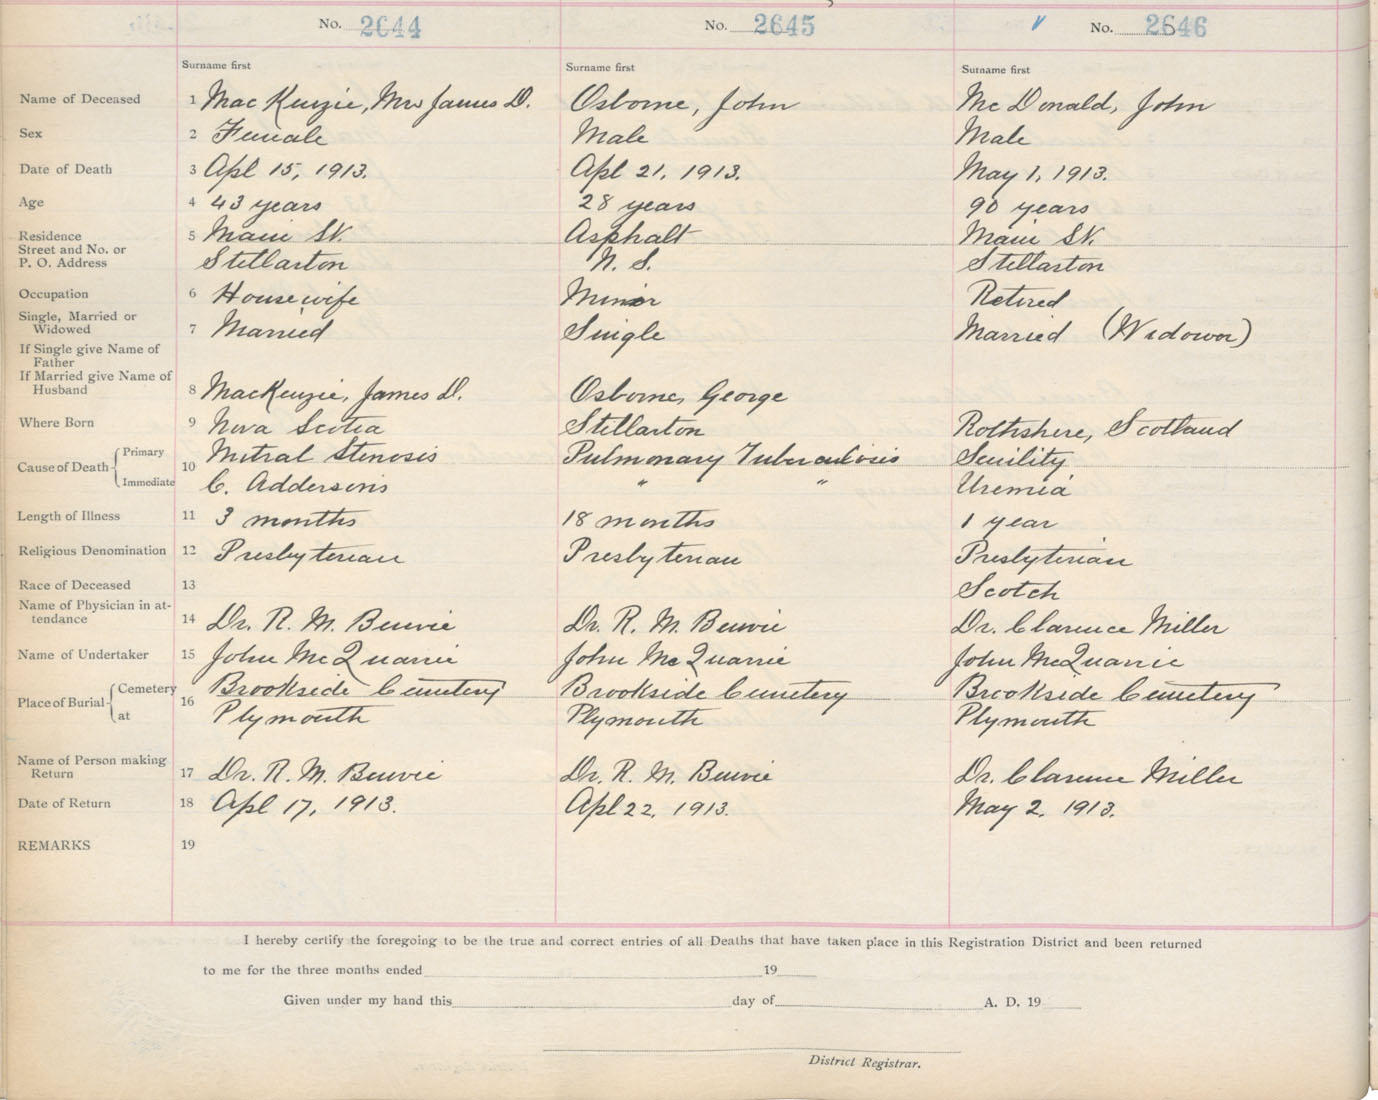 No. 2644 No. 2645 No. 2646
Surname first Surname first Surname first
Name of Deceased 1 MacKenzie, Mrs James D. Osborne, John McDonald, John
Sex 2 Female Male Male
Date of Death 3 Apl 15, 1913. Apl 21, 1913. May 1, 1913.
Age 4 43 years 28 years 90 years
Residence 5 Main St. Asphalt Main St.
Street and No. or
P. O. Address Stellarton N. S. Stellarton
Occupation 6 Housewife Miner Retired
Single, Married or
Widowed 7 Married Single Married (Widower)
If Single give Name of
Father
If Married give Name of
Husband 8 MacKenzie, James D. Osborne, George
Where Born 9 Nova Scotia Stellarton Rothshire, Scotland
Cause of Death Primary 10 Mitral Stenosis Pulmonary Tuberculosis Senility
Immediate C. Addersons " " Uremia
Length of Illness 11 3 months 18 months 1 year
Religious Denomination 12 Presbyterian Presbyterian Presbyterian
Race of Deceased 13 Scotch
Name of Physician in at-
tendance 14 Dr. R. M. Benvie Dr. R. M. Benvie Dr. Clarence Miller
Name of Undertaker 15 John McQuarrie John McQuarrie John McQuarrie
Place of Burial Cemetery 16 Brookside Cemetery Brookside Cemetery Brookside Cemetery
at Plymouth Plymouth Plymouth
Name of Person making
Return 17 Dr. R. M. Benvie Dr. R. M. Benvie Dr. Clarence Miller
Date of Return 18 Apl 17, 1913. Apl 22, 1913. May 2, 1913.
REMARKS 19
I hereby certify the foregoing to be the true and correct entries of all Deaths that have taken place in this Registration District and been returned
to me for the three months ended 19
Given under my hand this day of A. D. 19
District Registrar.